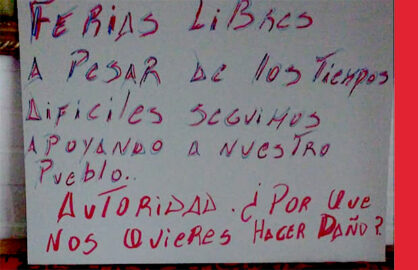 FERIAS LIBRES
A PESAR DE los TIEMPOS
DIFICILES SEGUIMOS
APOYANDO A NUESTRO
PUEBLO..
AUTORIDAD. ¿POR QUE
NOS QUIERES HACER DAÑO?